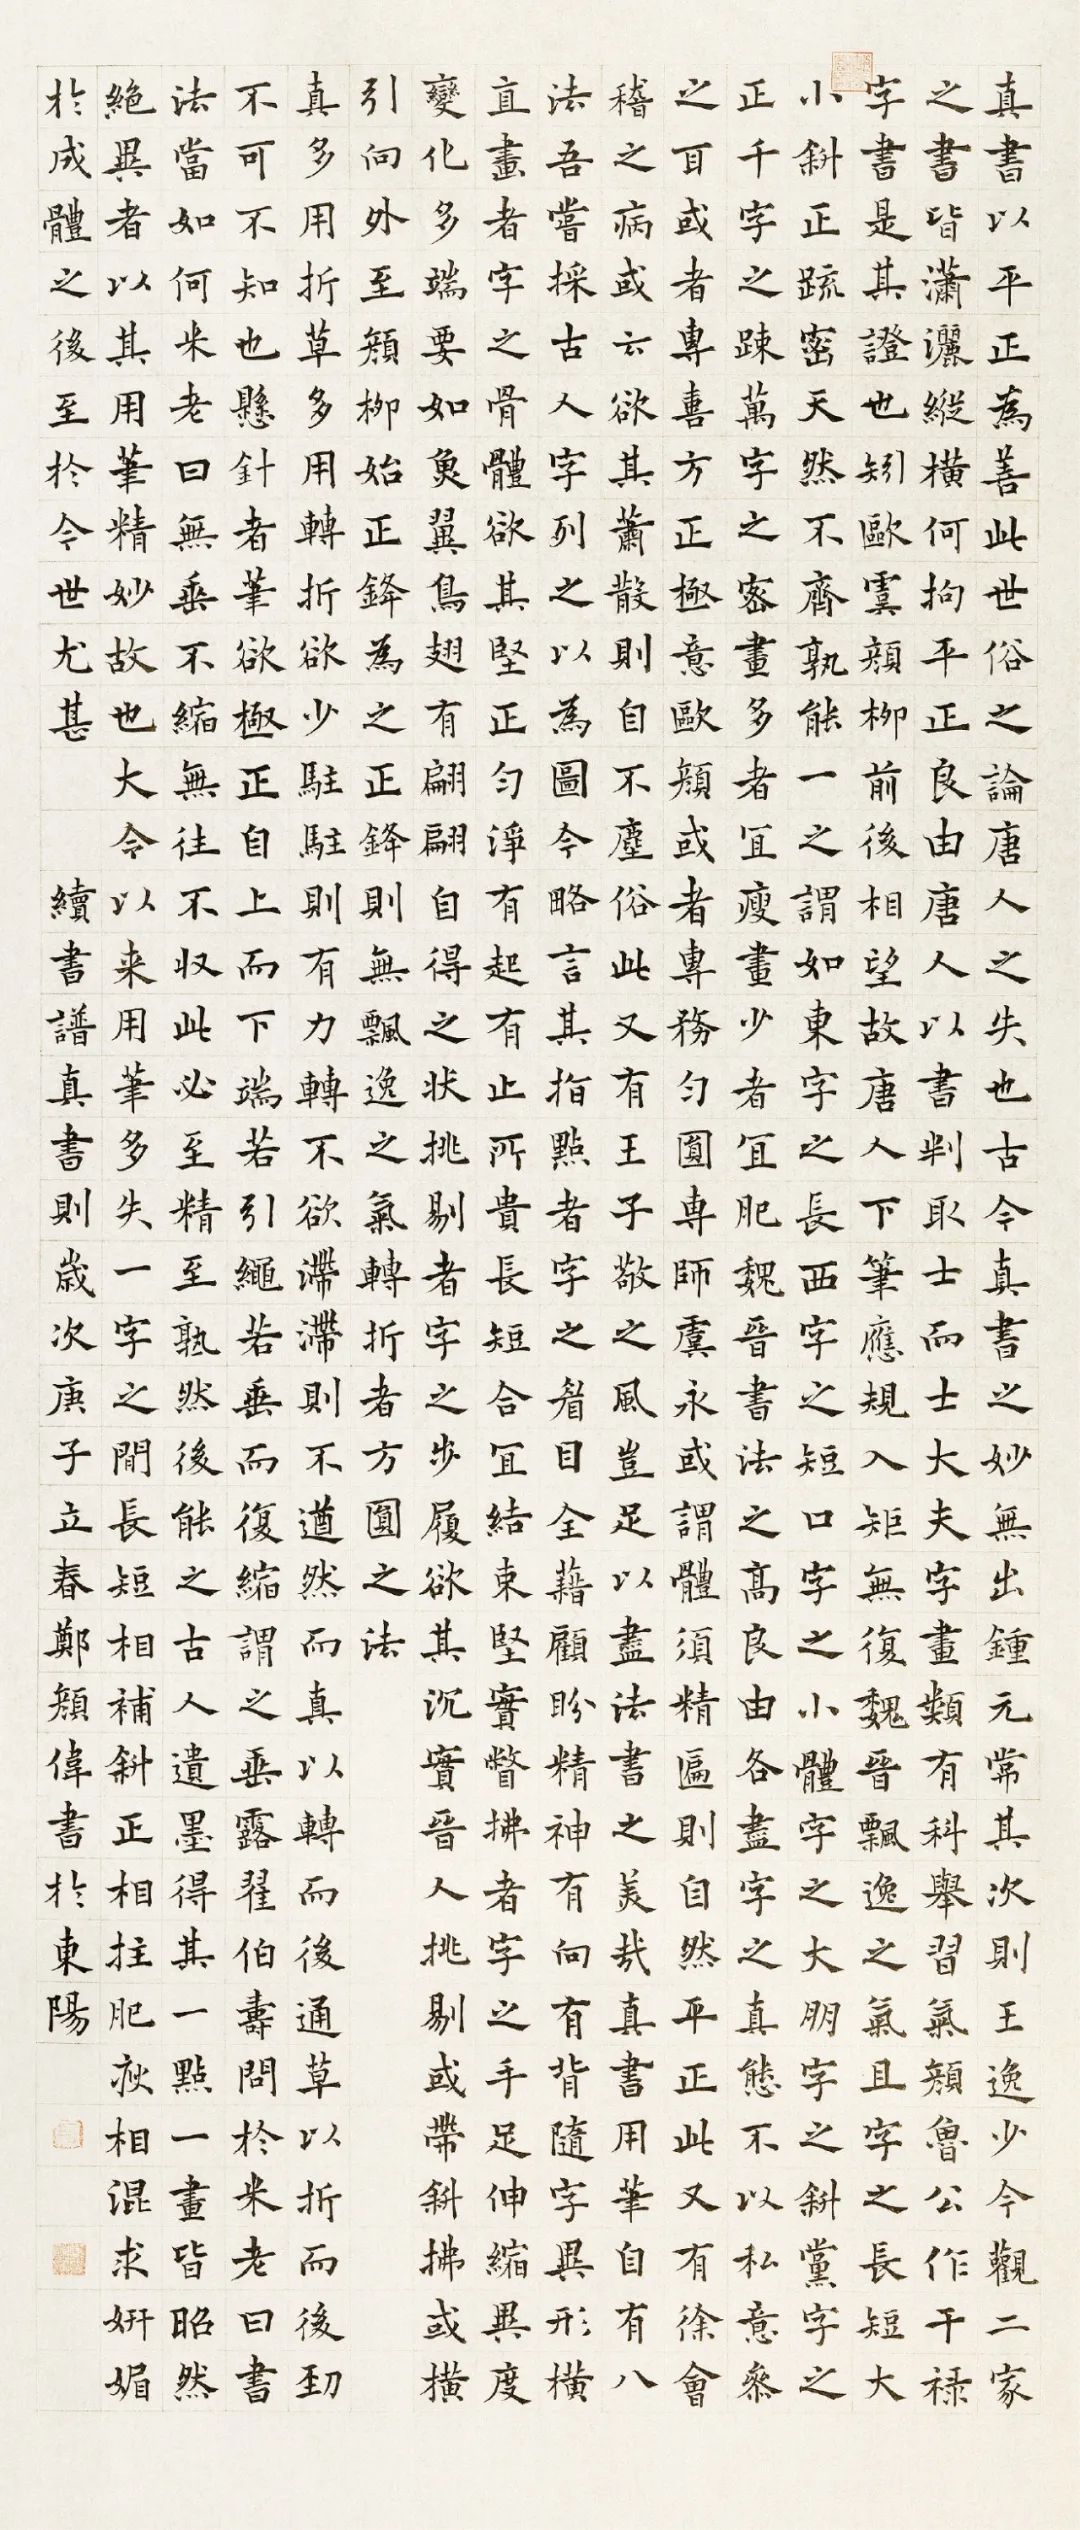 真書以平正為善此世俗之論唐人之失也古今真書之妙無出鍾元常其次則王逸少今觀二家
之書皆瀟灑縱橫何拘平正良由唐人以書判取士而士大夫字畫類有科舉習氣顏魯公作干祿
字書是其證也矧歐虞顏柳前後相望故唐人下筆應規入矩無復魏晉飄逸之氣且字之長短大
小斜正疏密天然不齊孰能一之謂如東字之長西字之短口字之小體字之大朋字之斜黨字之
正千字之疎萬字之密畫多者宜瘦畫少者宜肥魏晉書法之高良由各盡字之真態不以私意參
之耳或者專喜方正極意歐顏或者專務勻圓專師虞永或謂體須精匾則自然平正此又有徐會
稽之病或云欲其蕭散則自不塵俗此又有王子敬之風豈足以盡法書之美哉真書用筆自有八
法吾嘗採古人字列之以為圖今略言其指點者字之眉目全藉顧盼精神有向有背隨字異形橫
直畫者字之骨體欲其堅正勻淨有起有止所貴長短合宜結束堅實瞥拂者字之手足伸縮異度
變化多端要如魚翼鳥翅有翩翩自得之狀挑剔者字之步履欲其沉實晉人挑剔或帶斜拂或橫
引向外至顏柳始正鋒為之正鋒則無飄逸之氣轉折者方圓之法
真多用折草多用轉折欲少駐駐則有力轉不欲滯滯則不遒然而真以轉而後通草以折而後勁
不可不知也懸針者筆欲極正自上而下端若引繩若垂而復縮謂之垂露翟伯壽問於米老曰書
法當如何米老曰無垂不縮無往不收此必至精至熟然後能之古人遺墨得其一點一畫皆昭然
絕異者以其用筆精妙故也大令以来用筆多失一字之間長短相補斜正相拄肥瘦相混求妍媚
於成體之後至於今世尤甚 續書譜真書則歲次庚子立春鄭頻偉書於東陽